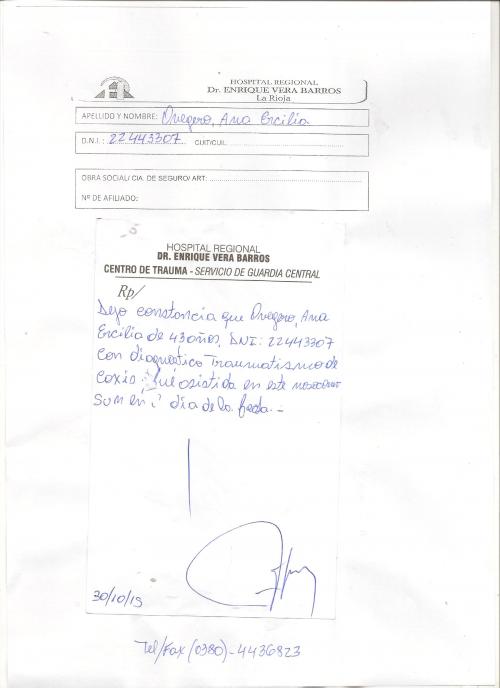 HOSPITAL REGIONAL
Dr. ENRIQUE VERA BARROS
La Rioja
APELLIDO Y NOMBRE: Oregero, Ana Ercilia
D.N.I.: 22443307 CUIT/CUIL.
OBRA SOCIAL/ CIA. DE SEGURO/ ART:
Nº DE AFILIADO:
HOSPITAL REGIONAL
DR. ENRIQUE VERA BARROS
CENTRO DE TRAUMA - SERVICIO DE GUARDIA CENTRAL
Rp/
Dejo constancia que Oregero, Ana
Ercilia de 43 años, DNI: 22443307
con diagnostico Traumatismo de
Coxis. Fué asistida en este
día de la fecha.-
30/10/15
Tel/Fax (0380)-4436823